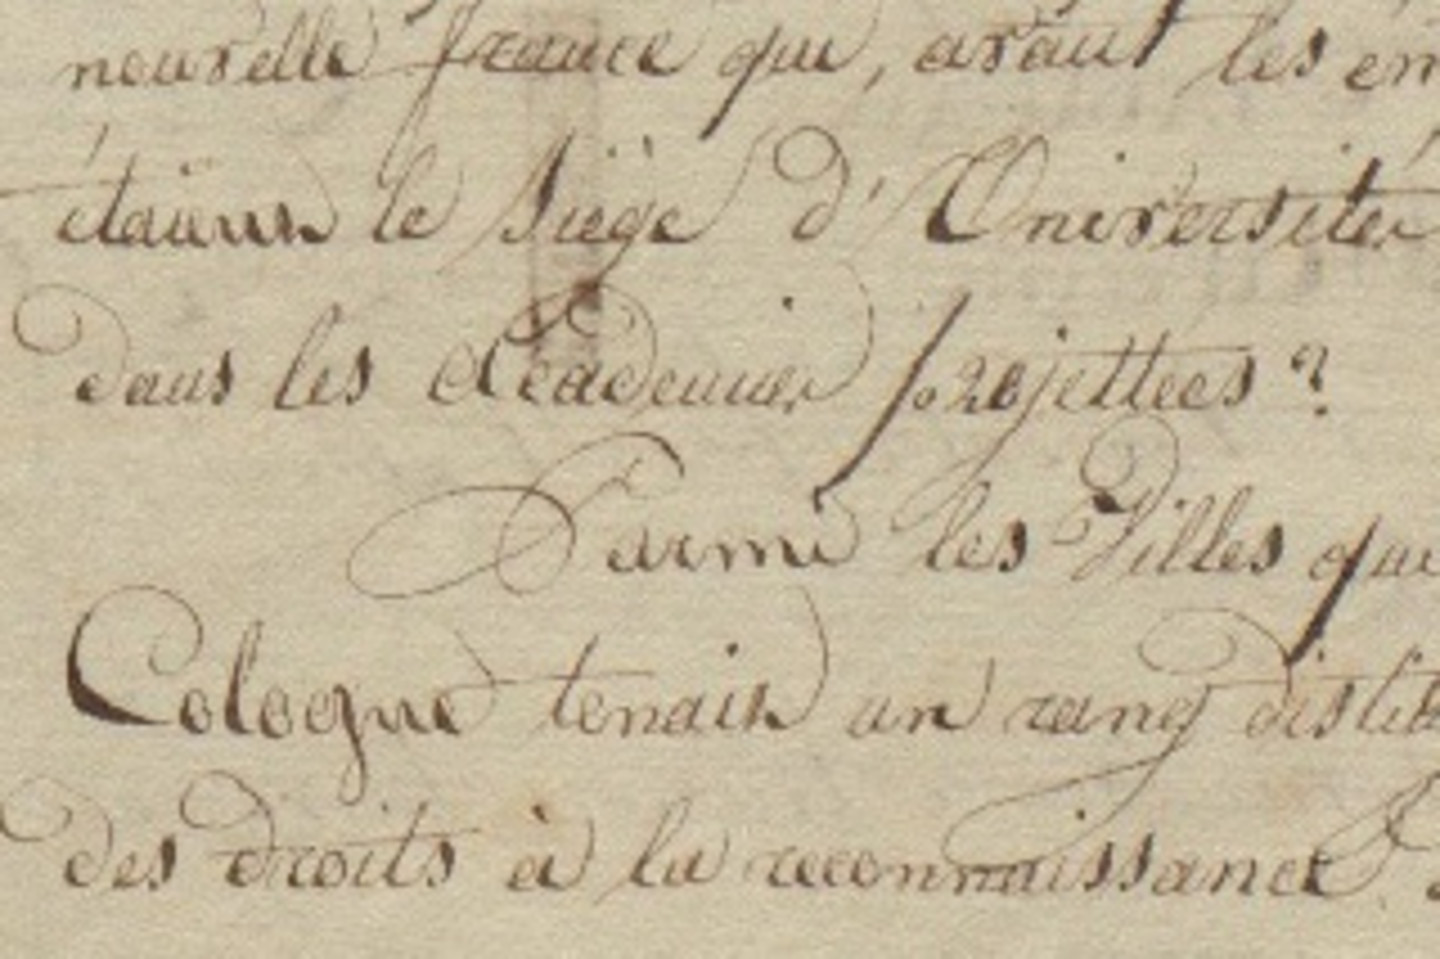 nouvelle france que, avant les en
étaient le Siège d'Universités
dans les Academies projettées?
Parmi les Villes qui
Cologne tenait un rang distin
des droits à la reconnaissance